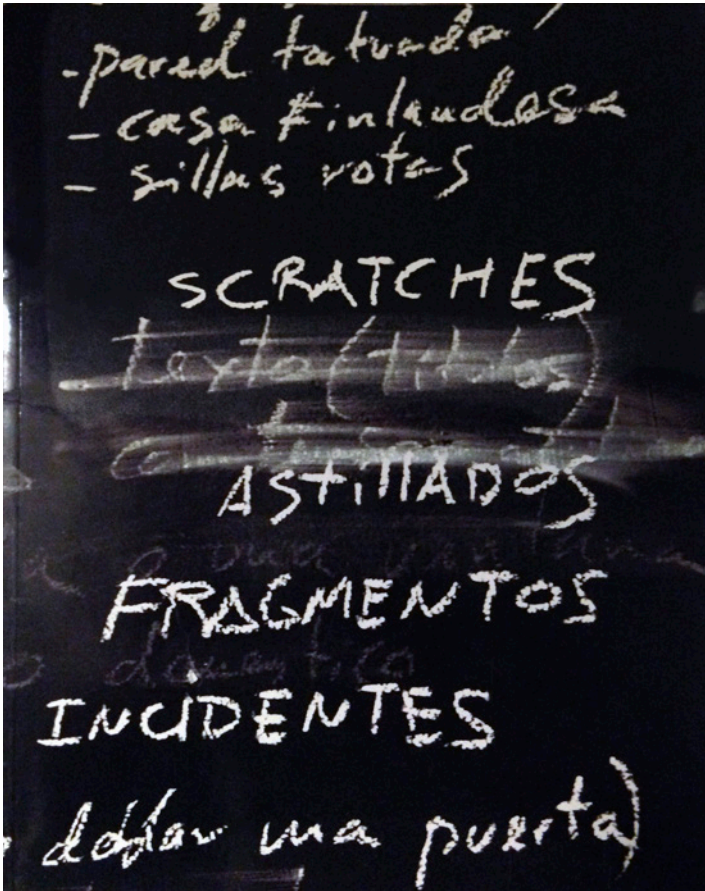 - pared tatuada
- casa Finlandesa
- sillas rotas
SCRATCHES
texto (títulos)
ASTILLADOS
FRAGMENTOS
doméstico
INCIDENTES
doblar una puerta)